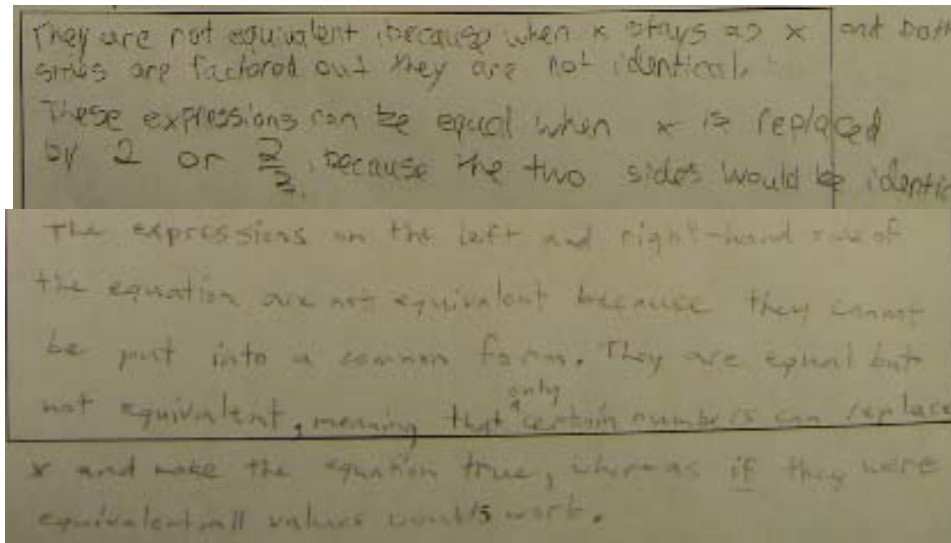 They are not equivalent, because when x stays as x and both
sides are factored out they are not identical.
These expressions can be equal when x is replaced
by 2 or 2/3. because the two sides would be identic
The expressions on the left and right-hand side of
the equation are not equivalent because they cannot
be put into a common form. They are equal but
not equivalent, meaning that only certain numbers can replace
x and make the equation true, whereas if they were
equivalent all values would work.